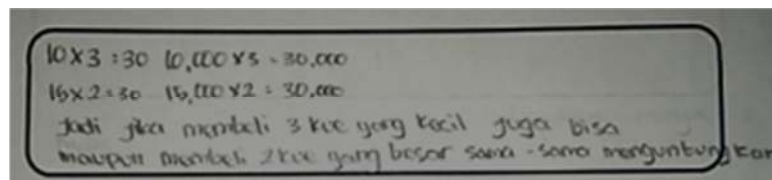 10 x 3 = 30 10,000 x 3 = 30.000
15 x 2 = 30 15,000 x 2 = 30.000
Jadi jika membeli 3 kue yang kecil juga bisa
maupun membeli 2 kue yang besar sama-sama menguntungkan